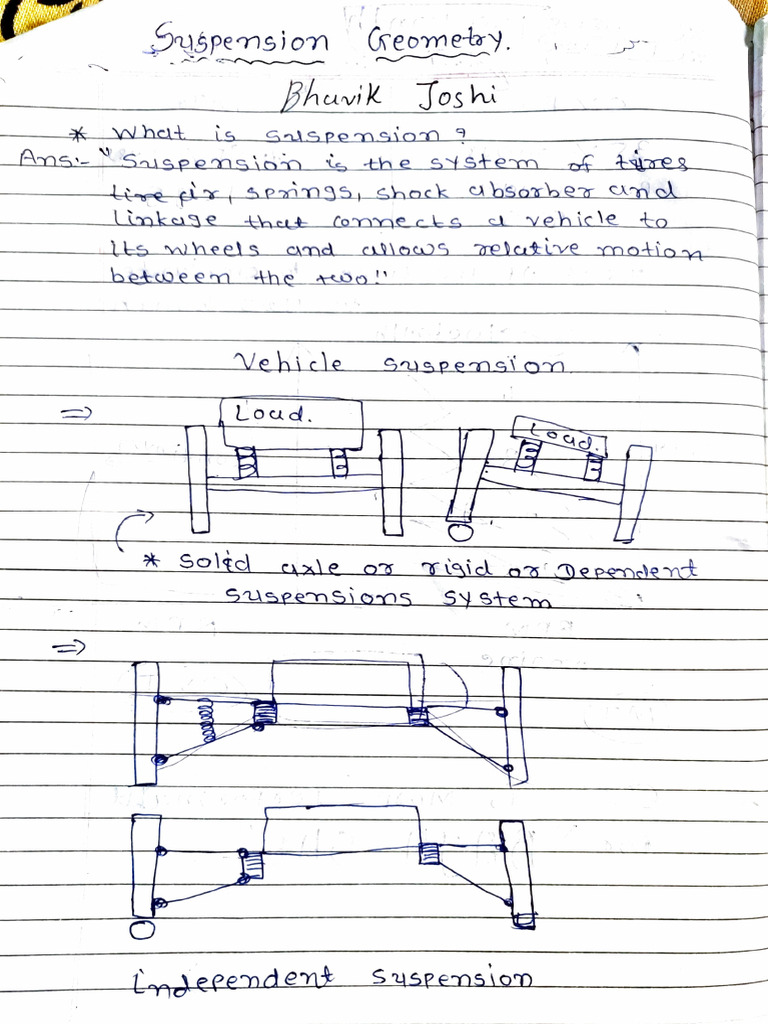 Suspension Geometry.
Bhavik Joshi
* What is suspension?
Ans:- "Suspension is the system of tires
tire air, springs, shock absorber and
linkage that connects a vehicle to
its wheels and allows relative motion
between the two!"
Vehicle suspension
⇒
Load.
Load.
* Solid axle or rigid or Dependent
suspensions system
⇒
independent suspension